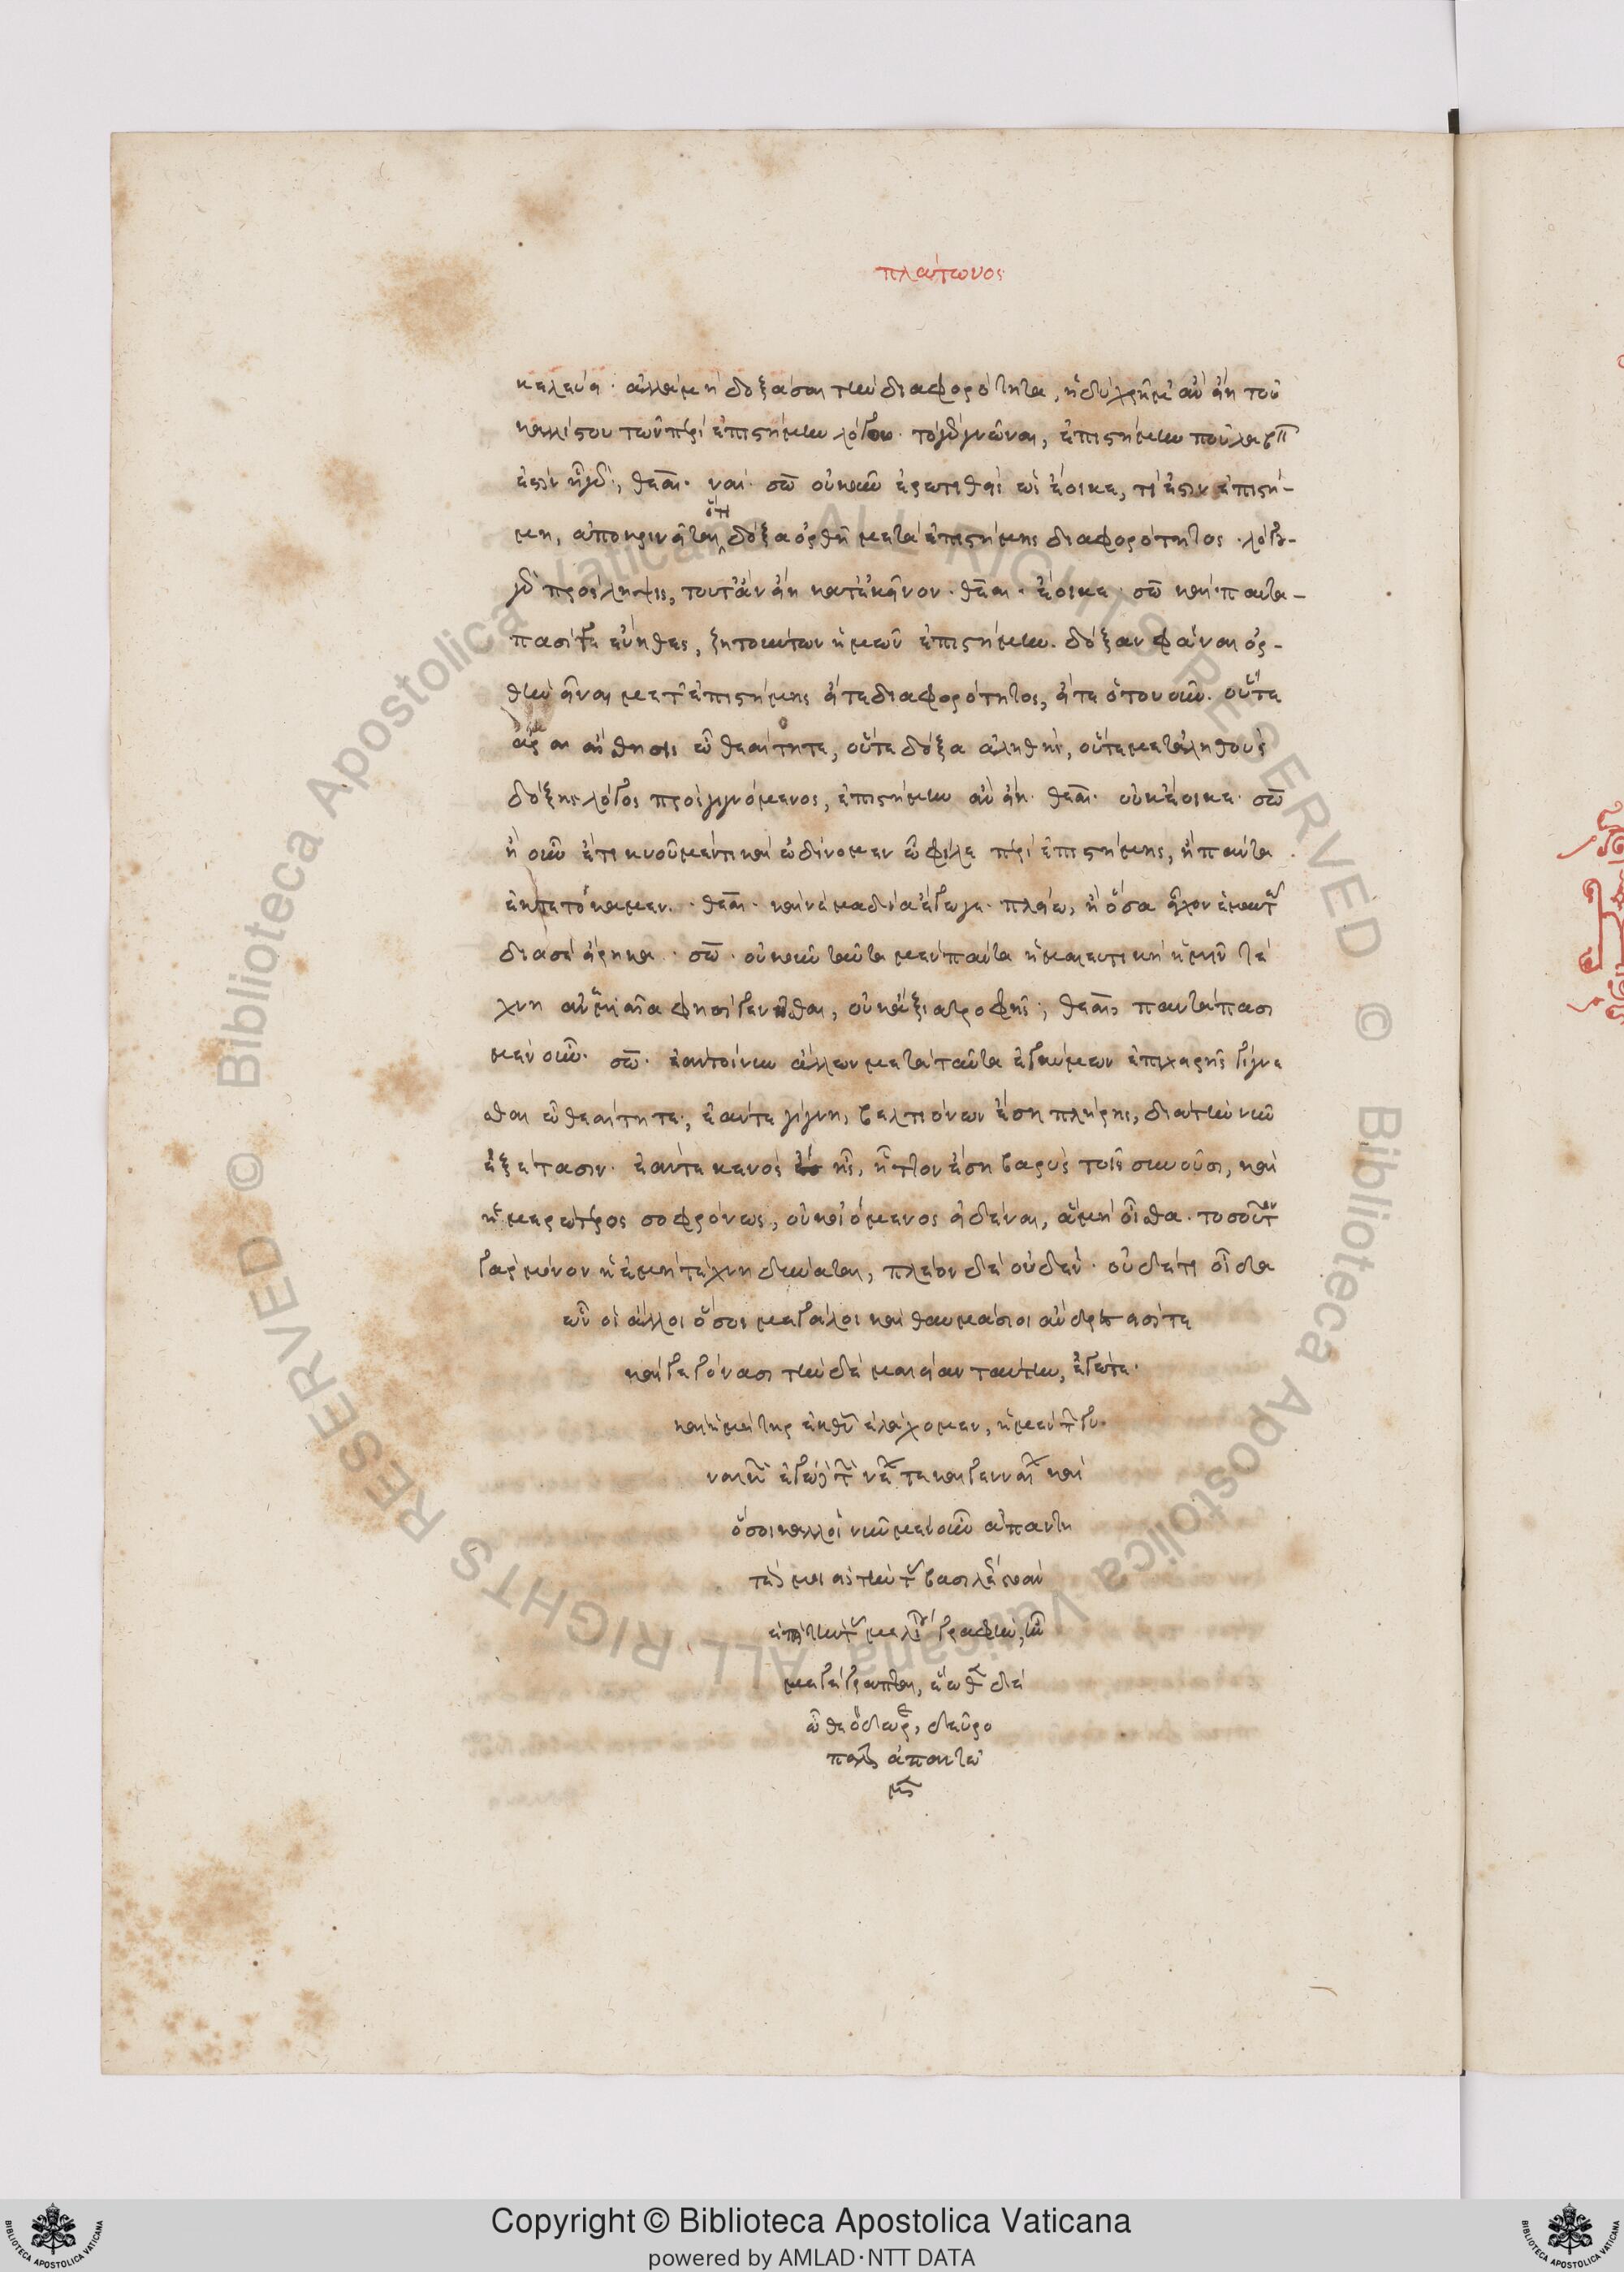 πλάτωνος
κελεύει· ἀλλὰ μὴ δοξάσαι τὴν διαφορότητα, ἡδὺ χρῆμ' ἂν εἴη τοῦ
καλλίστου τῶν περὶ ἐπιστήμην λόγου· τὸ γὰρ γνῶναι, ἐπιστήμην που λαβεῖν
ἐστὶν ἦ γάρ; θεαι· ναί· σω οὐκοῦν ἐρωτηθεὶς ὡς ἔοικε, τί ἐστιν ἐπιστή-
μη, ἀποκρινεῖται ὅτι δόξα ὀρθὴ μετὰ ἐπιστήμης διαφορότητος· λόγου
γὰρ πρόσληψις, τοῦτ' ἂν εἴη κατ' ἐκεῖνον· θεαι· ἔοικε· σω καὶ παντά-
πασί γε εὔηθες, ζητούντων ἡμῶν ἐπιστήμην· δόξαν φάναι ὀρ-
θὴν εἶναι μετ' ἐπιστήμης εἴτε διαφορότητος, εἴτε ὁτουοῦν· οὔτε
ἄρα αἴσθησις ὦ θεαίτητε, οὔτε δόξα ἀληθής, οὔτε μετ' ἀληθοῦς
δόξης λόγος προσγιγνόμενος, ἐπιστήμη ἂν εἴη· θεαι· οὐκ ἔοικε· σω
ἦ οὖν ἔτι κυοῦμέν τι καὶ ὠδίνομεν ὦ φίλε περὶ ἐπιστήμης, ἢ πάντα
ἐκτετόκαμεν· θεαι· καὶ ναὶ μὰ δία ἔγωγε· πλείω, ἢ ὅσα εἶχον ἐμαυτῷ
διὰ σὲ εἴρηκα· σω· οὐκοῦν ταῦτα μὲν πάντα ἡ μαιευτικὴ ἡμῖν τέ
χνη ἀνεμιαῖα φησὶ γεγενῆσθαι, οὐκ ἄξια τροφῆς; θεαι, παντάπασι
μὲν οὖν· σω· ἐὰν τοίνυν ἄλλων μετὰ ταῦτα ἐγκύμων ἐπιχειρῇς γίγνε
σθαι ὦ θεαίτητε, ἐάν τε γίγνῃ, βελτιόνων ἔσῃ πλήρης, διὰ τὴν νῦν
ἐξέτασιν· ἐάν τε κενὸς ᾖς, ἧττον ἔσῃ βαρὺς τοῖς συνοῦσι, καὶ
ἡμερώτερος σοφρόνως, οὐκ οἰόμενος εἰδέναι, ἃ μὴ οἶσθα· τοσοῦτον
γὰρ μόνον ἡ ἐμὴ τέχνη δύναται, πλέον δὲ οὐδέν· οὐδέ τι οἶδα
ὧν οἱ ἄλλοι ὅσοι μεγάλοι καὶ θαυμάσιοι ἄνδρες εἰσί τε
καὶ γεγόνασι τὴν δὲ μαιείαν ταύτην, ἐγώ τε·
καὶ ἡ μήτηρ ἐκ θεοῦ ἐλάχομεν, ἡ μὲν τῶν γυ
ναικῶν ἐγὼ δὲ τῶν νέων τε καὶ γενναίων καὶ
ὅσοι καλλοί νῦν μὲν οὖν ἀπαντη
τέον μοι εἰς τὴν τοῦ βασιλέως στοὰν
ἐπὶ τὴν τοῦ μελίτου γραφὴν, ἥν
με γέγραπται, ἕωθεν δέ
ὦ θεόδωρε, δεῦρο
πάλιν ἀπαντῶ
μεν